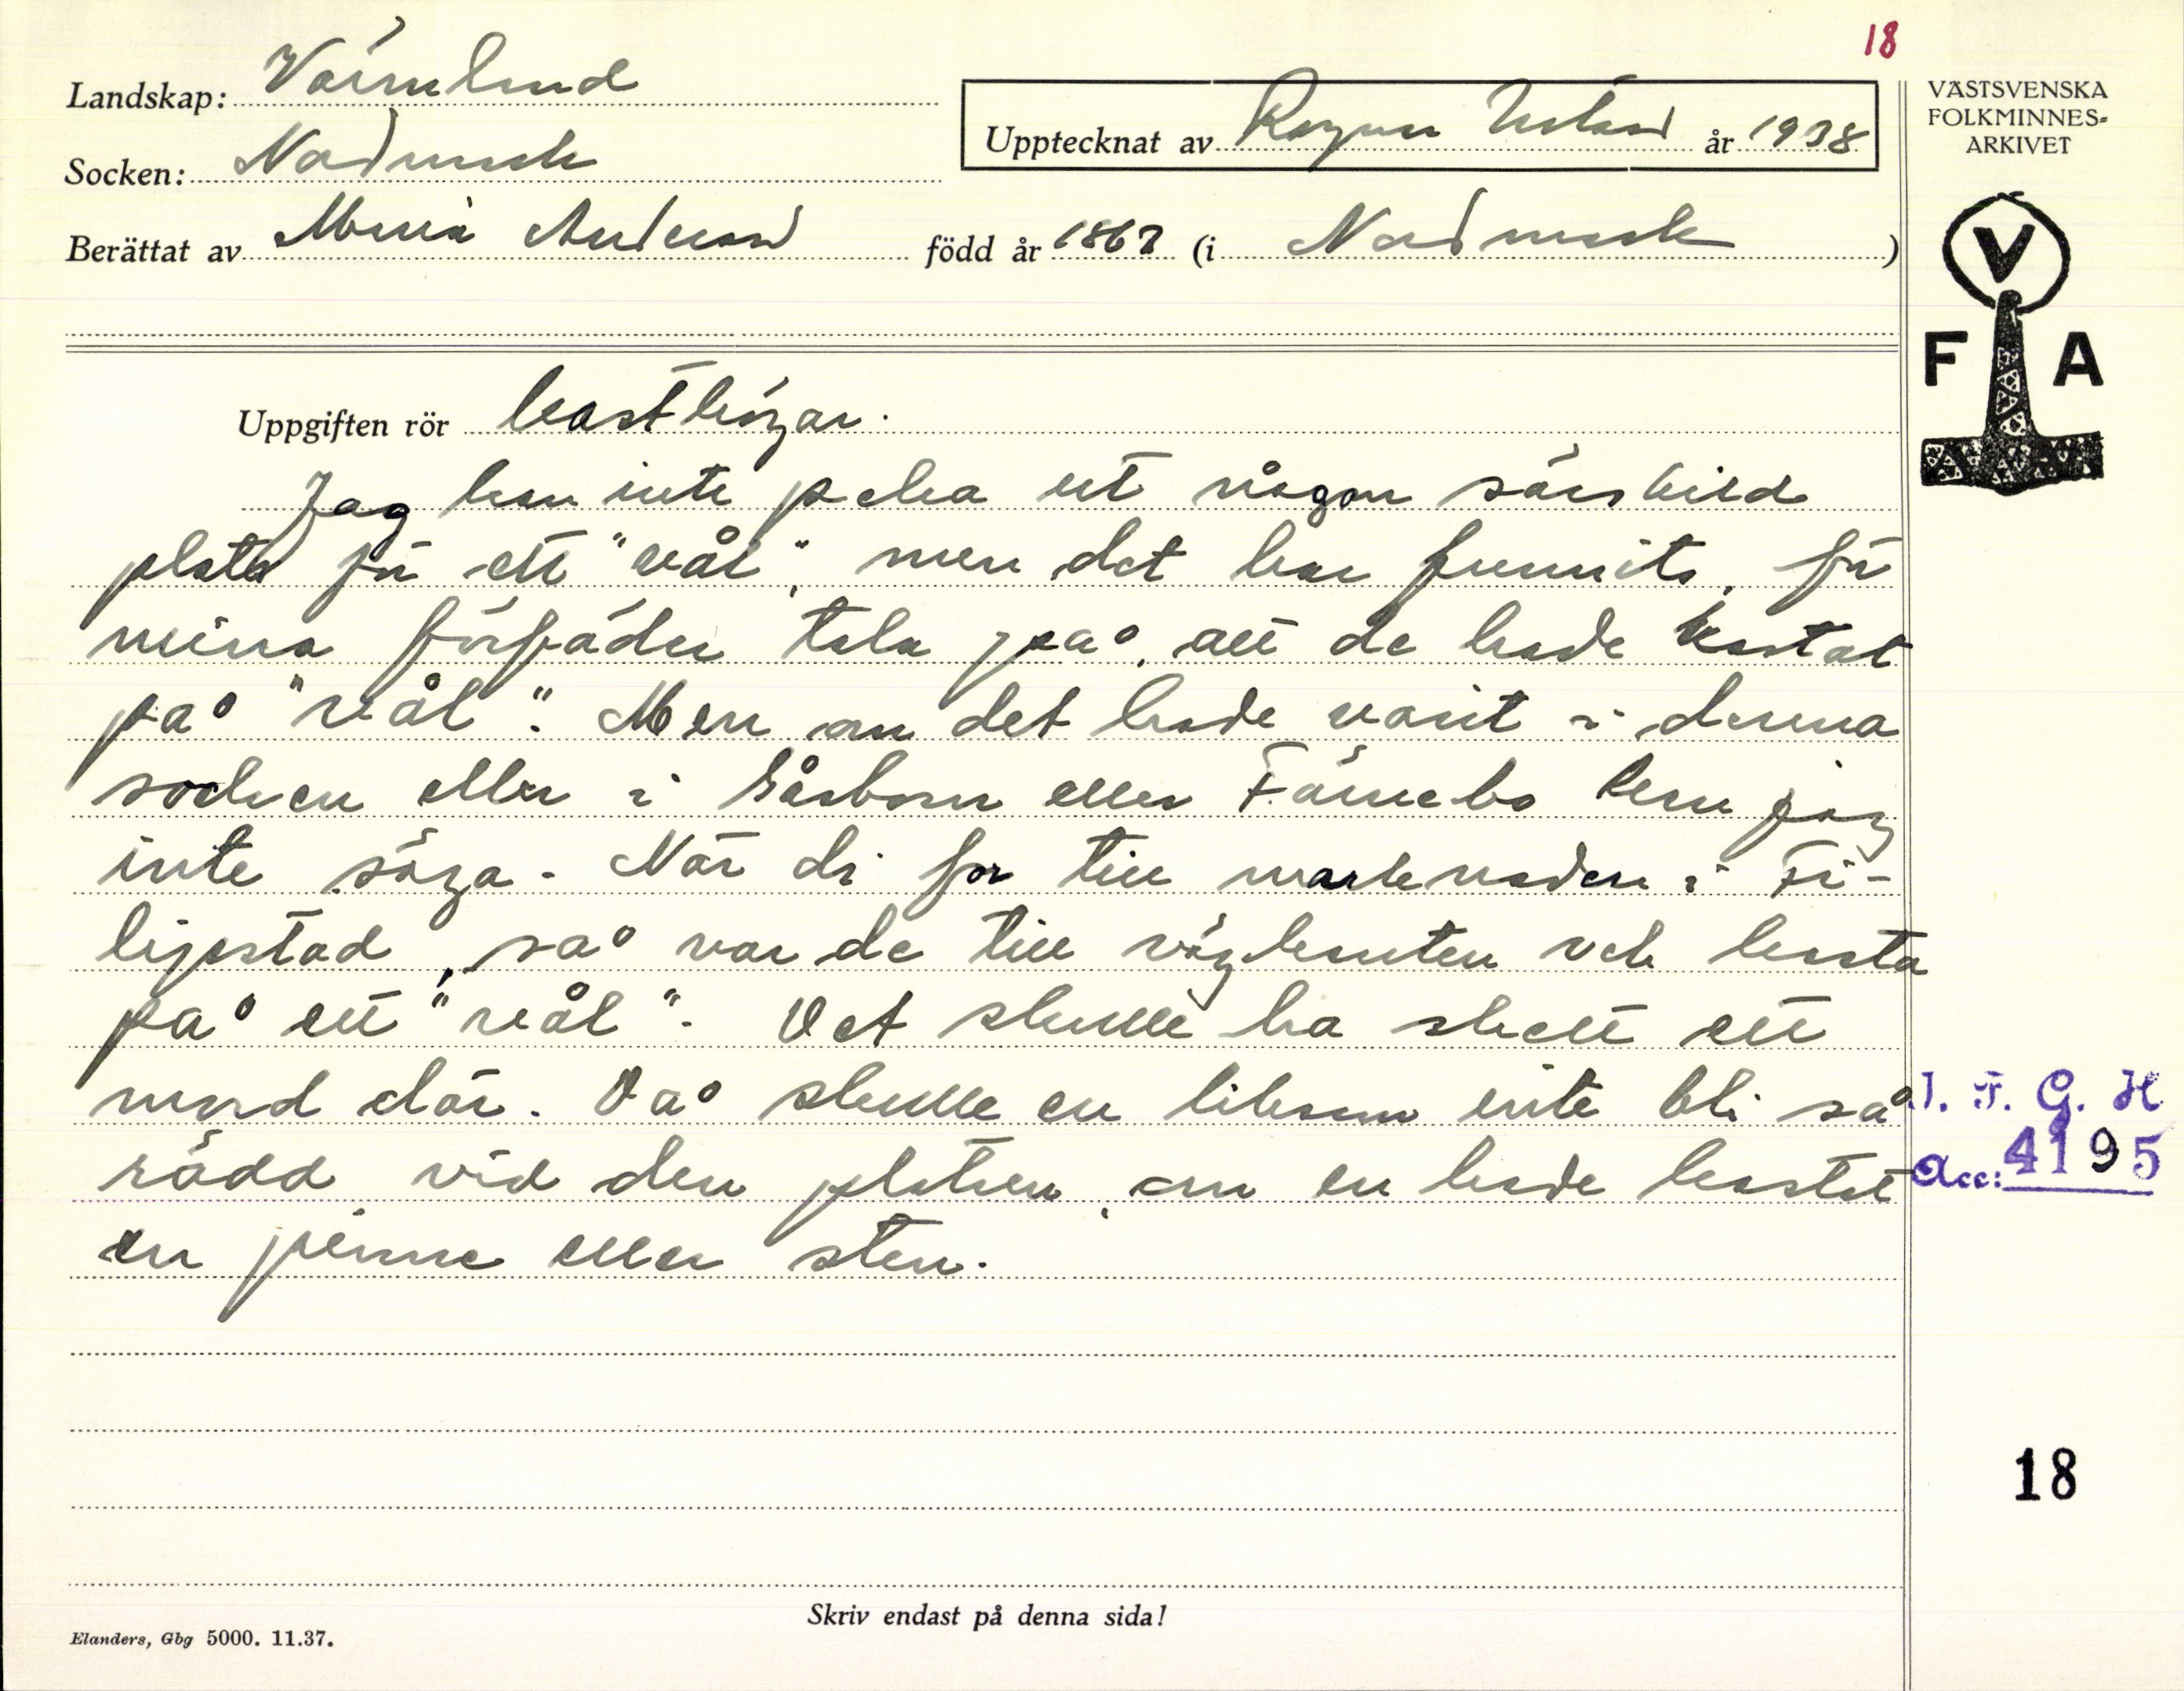 18
Landskap: Värmland
Socken: Nordmark
Upptecknat av Ragnar Nilsson år 1938
Berättat av Maria Anderson född år 1867 (i Nordmark)
VÄSTSVENSKA
FOLKMINNES-
ARKIVET
V
F A
Uppgiften rör kasthögar.
Jag kan inte peka ut någon särskild
plats för ett "vål", men det har funnits, för
mina förfäder tala på, att de hade kastat
på "vål". Men om det hade varit i denna
socken eller i Gåsborn eller Färnebo kan jag
inte säga. När di for till marknaden i Fi-
lipstad, så var de till vägkanten och kasta
på ett "vål". Det skulle ha skett ett
mord där. Då skulle en liksom inte bli så
rädd vid den platsen, om en hade kastat
en pinne eller sten.
I. F. G. H
Acc: 4195
18
Skriv endast på denna sida!
Elanders, Gbg 5000. 11.37.